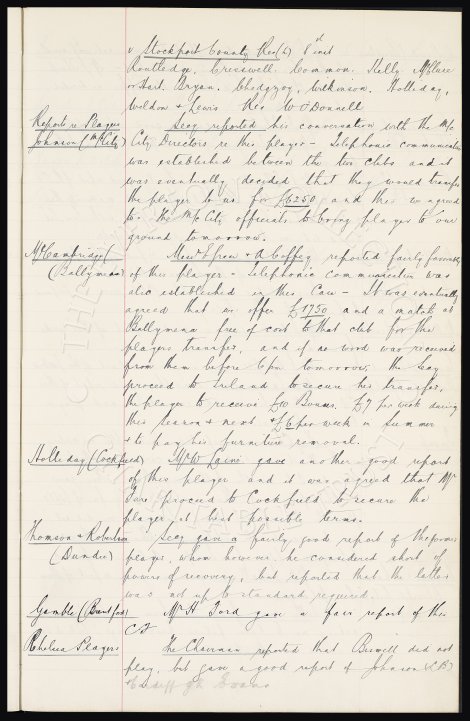 v Stockport County Res (h) 8th inst
Routledge, Cresswell. Common. Kelly, McClure
or Hart. Bryan. Chedgzoy, Wilkinson. Holliday,
Weldon & Lewis Res W O'Donnell
Reports re Players
Johnson (M/C City)
Secy reported his conversation with the M/c
City Directors re this player - Telephonic communication
was established between the two clubs and it
was eventually decided that they would transfer
the player to us for £6250 and this was agreed
to. the M/c City officials to bring player to our
ground tomorrow.
McCambridge
(Ballymena)
Messrs Green & A Coffey reported fairly favorably
of this player - Telephonic communication was
also established in this Case - It was eventually
agreed that we offer £1750 and a match at
Ballymena free of cost to that club for the
players transfer, and if no word was received
from them before 6 pm tomorrow, the Secy
proceed to Ireland to secure his transfer,
the player to receive £10 Bonus. £7 per week during
this season & next & £6 per week in Summer
& to pay his furniture removal.
Holliday (Cockfield)
Mr W gave another good report
of this player and it was agreed that Mr
proceed to Cockfield to secure the
player at best possible terms.
Thomson & Robertson
(Dundee)
Secy gave a fairly good report of the former
player, whom however he considered short of
powers of recovery, but reported that the latter
was not up to standard required.
Gamble (Brentford)
Mr H Ford gave a fair report of this
C.F
Chelsea Players
The Chairman reported that did not
play, but gave a good report of Johnson (L.B)